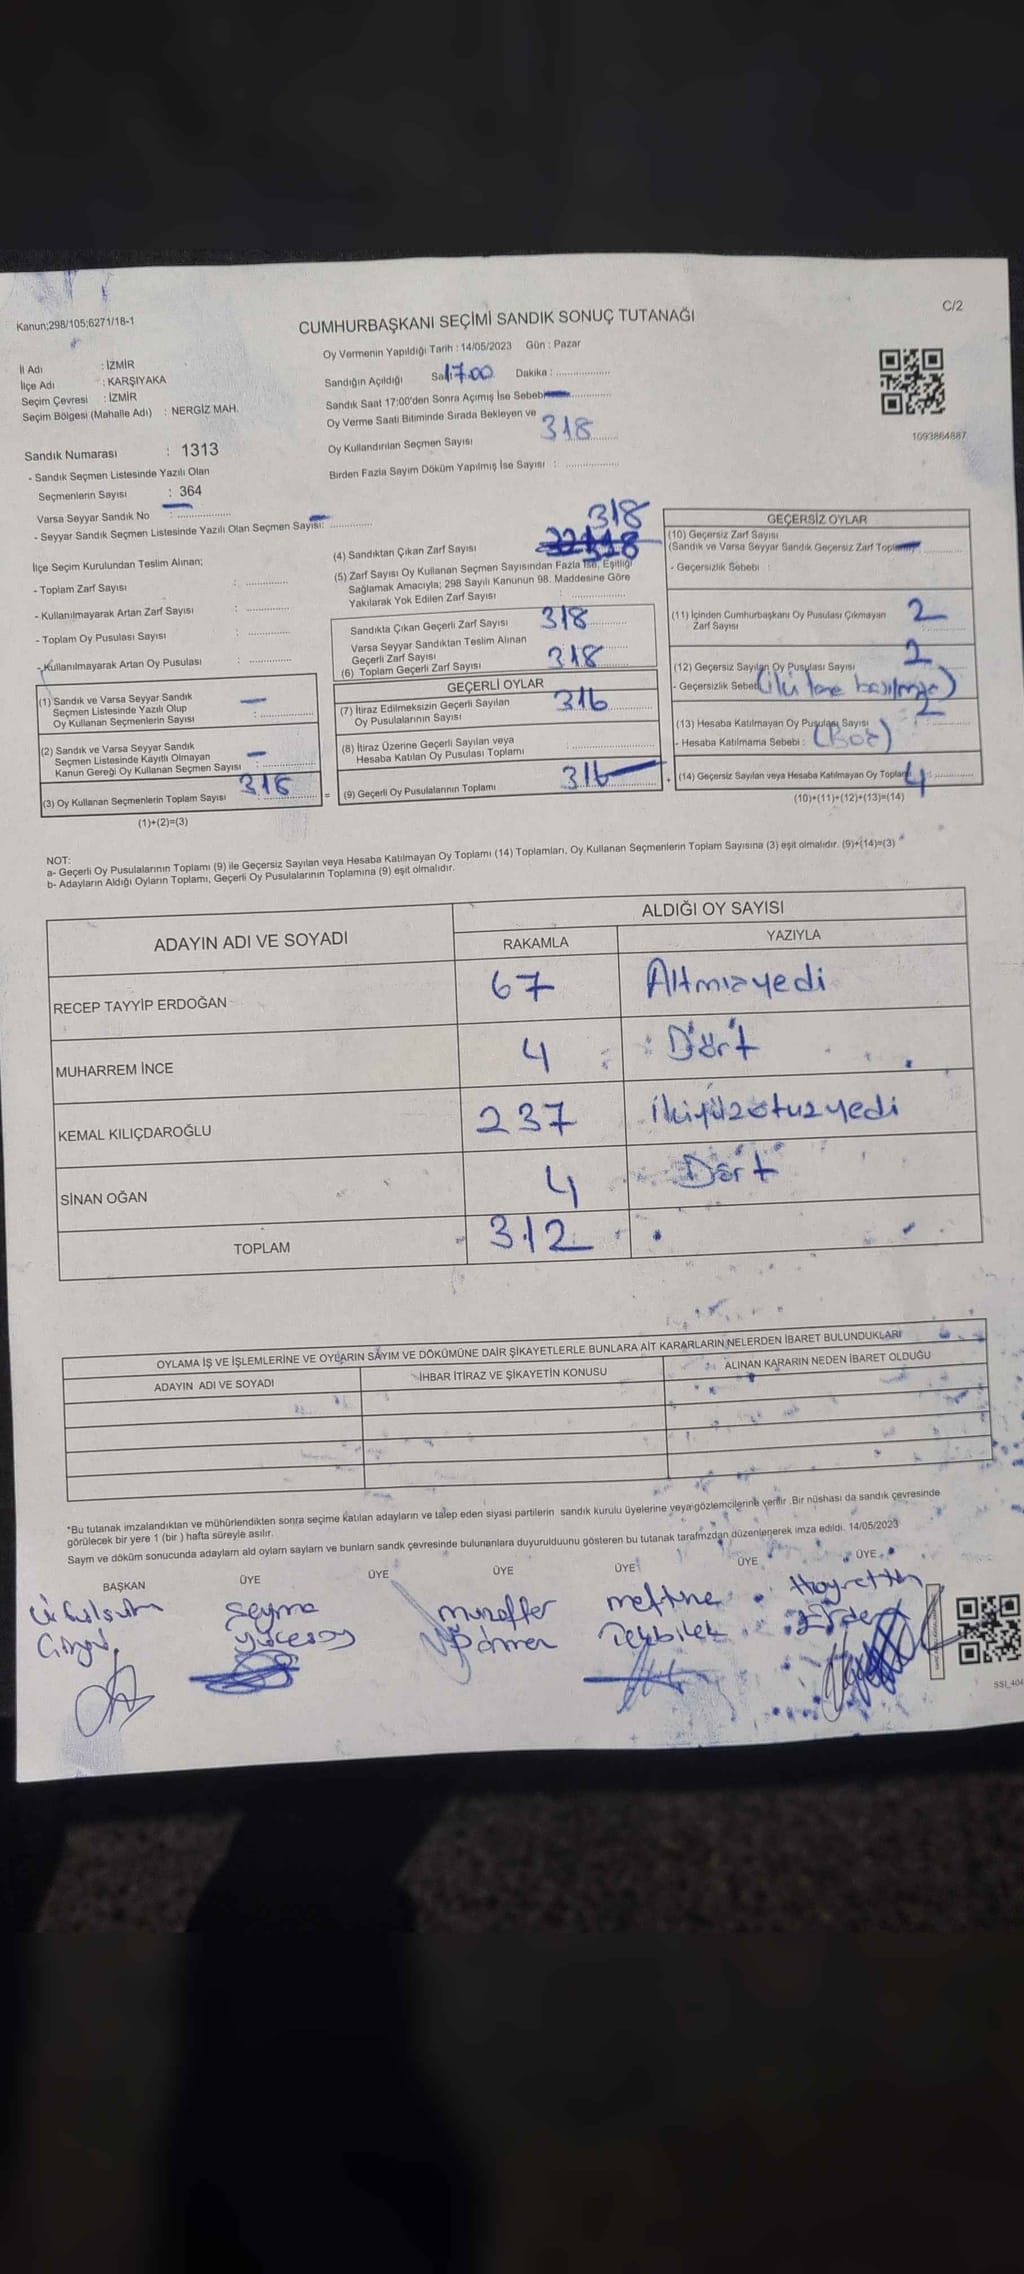 Kanun;298/105;6271/18-1
C/2
CUMHURBAŞKANI SEÇİMİ SANDIK SONUÇ TUTANAĞI
İl Adı : İZMİR
İlçe Adı : KARŞIYAKA
Seçim Çevresi : İZMİR
Seçim Bölgesi (Mahalle Adı) : NERGİZ MAH.
Oy Vermenin Yapıldığı Tarih : 14/05/2023 Gün : Pazar
Sandığın Açıldığı 17.00 Dakika :
Sandık Saat 17:00'den Sonra Açımış İse Sebebi
Oy Verme Saati Bitiminde Sırada Bekleyen ve
Oy Kullandırılan Seçmen Sayısı 318
Birden Fazla Sayım Döküm Yapılmış İse Sayısı :
1093864887
Sandık Numarası : 1313
- Sandık Seçmen Listesinde Yazılı Olan
Seçmenlerin Sayısı : 364
Varsa Seyyar Sandık No :
- Seyyar Sandık Seçmen Listesinde Yazılı Olan Seçmen Sayısı:
İlçe Seçim Kurulundan Teslim Alınan;
- Toplam Zarf Sayısı :
- Kullanılmayarak Artan Zarf Sayısı :
- Toplam Oy Pusulası Sayısı :
- Kullanılmayarak Artan Oy Pusulası :
(1) Sandık ve Varsa Seyyar Sandık
Seçmen Listesinde Yazılı Olup
Oy Kullanan Seçmenlerin Sayısı : —
(2) Sandık ve Varsa Seyyar Sandık
Seçmen Listesinde Kayıtlı Olmayan
Kanun Gereği Oy Kullanan Seçmen Sayısı : —
(3) Oy Kullanan Seçmenlerin Toplam Sayısı : 316
(1)+(2)=(3)
318
(4) Sandıktan Çıkan Zarf Sayısı
(5) Zarf Sayısı Oy Kullanan Seçmen Sayısından Fazla İse, Eşitliği
Sağlamak Amacıyla; 298 Sayılı Kanunun 98. Maddesine Göre
Yakılarak Yok Edilen Zarf Sayısı :
Sandıkta Çıkan Geçerli Zarf Sayısı 318
Varsa Seyyar Sandıktan Teslim Alınan
Geçerli Zarf Sayısı
(6) Toplam Geçerli Zarf Sayısı 318
GEÇERLİ OYLAR
(7) İtiraz Edilmeksizin Geçerli Sayılan
Oy Pusulalarının Sayısı 316
(8) İtiraz Üzerine Geçerli Sayılan veya
Hesaba Katılan Oy Pusulası Toplamı :
= (9) Geçerli Oy Pusulalarının Toplamı 316 +
GEÇERSİZ OYLAR
(10) Geçersiz Zarf Sayısı
(Sandık ve Varsa Seyyar Sandık Geçersiz Zarf Toplamı)
- Geçersizlik Sebebi :
(11) İçinden Cumhurbaşkanı Oy Pusulası Çıkmayan 2
Zarf Sayısı
(12) Geçersiz Sayılan Oy Pusulası Sayısı 2
- Geçersizlik Sebebi
(13) Hesaba Katılmayan Oy Pusulası Sayısı 2
- Hesaba Katılmama Sebebi : (Boş)
(14) Geçersiz Sayılan veya Hesaba Katılmayan Oy Toplamı : 4
(10)+(11)+(12)+(13)=(14)
NOT:
a- Geçerli Oy Pusulalarının Toplamı (9) ile Geçersiz Sayılan veya Hesaba Katılmayan Oy Toplamı (14) Toplamları, Oy Kullanan Seçmenlerin Toplam Sayısına (3) eşit olmalıdır. (9)+(14)=(3)
b- Adayların Aldığı Oyların Toplamı, Geçerli Oy Pusulalarının Toplamına (9) eşit olmalıdır.
ADAYIN ADI VE SOYADI
ALDIĞI OY SAYISI
RAKAMLA YAZIYLA
RECEP TAYYİP ERDOĞAN 67 Altmışyedi
MUHARREM İNCE 4 Dört
KEMAL KILIÇDAROĞLU 237 ikiyüzotuzyedi
SİNAN OĞAN 4 Dört
TOPLAM 312
OYLAMA İŞ VE İŞLEMLERİNE VE OYLARIN SAYIM VE DÖKÜMÜNE DAİR ŞİKAYETLERLE BUNLARA AİT KARARLARIN NELERDEN İBARET BULUNDUKLARI
ADAYIN ADI VE SOYADI İHBAR İTİRAZ VE ŞİKAYETİN KONUSU ALINAN KARARIN NEDEN İBARET OLDUĞU
*Bu tutanak imzalandıktan ve mühürlendikten sonra seçime katılan adayların ve talep eden siyasi partilerin sandık kurulu üyelerine veya gözlemcilerine verilir .Bir nüshası da sandık çevresinde
görülecek bir yere 1 (bir ) hafta süreyle asılır.
Sayım ve döküm sonucunda adayların ald oylarn sayları ve bunların sandk çevresinde bulunanlara duyurulduunu gösteren bu tutanak tarafmzdan düzenlenerek imza edildi. 14/05/2023
BAŞKAN ÜYE ÜYE ÜYE ÜYE ÜYE ÜYE
Seyma Muzaffer Meftune Hayrettin
Dönmez Tekbilek
SSI_404